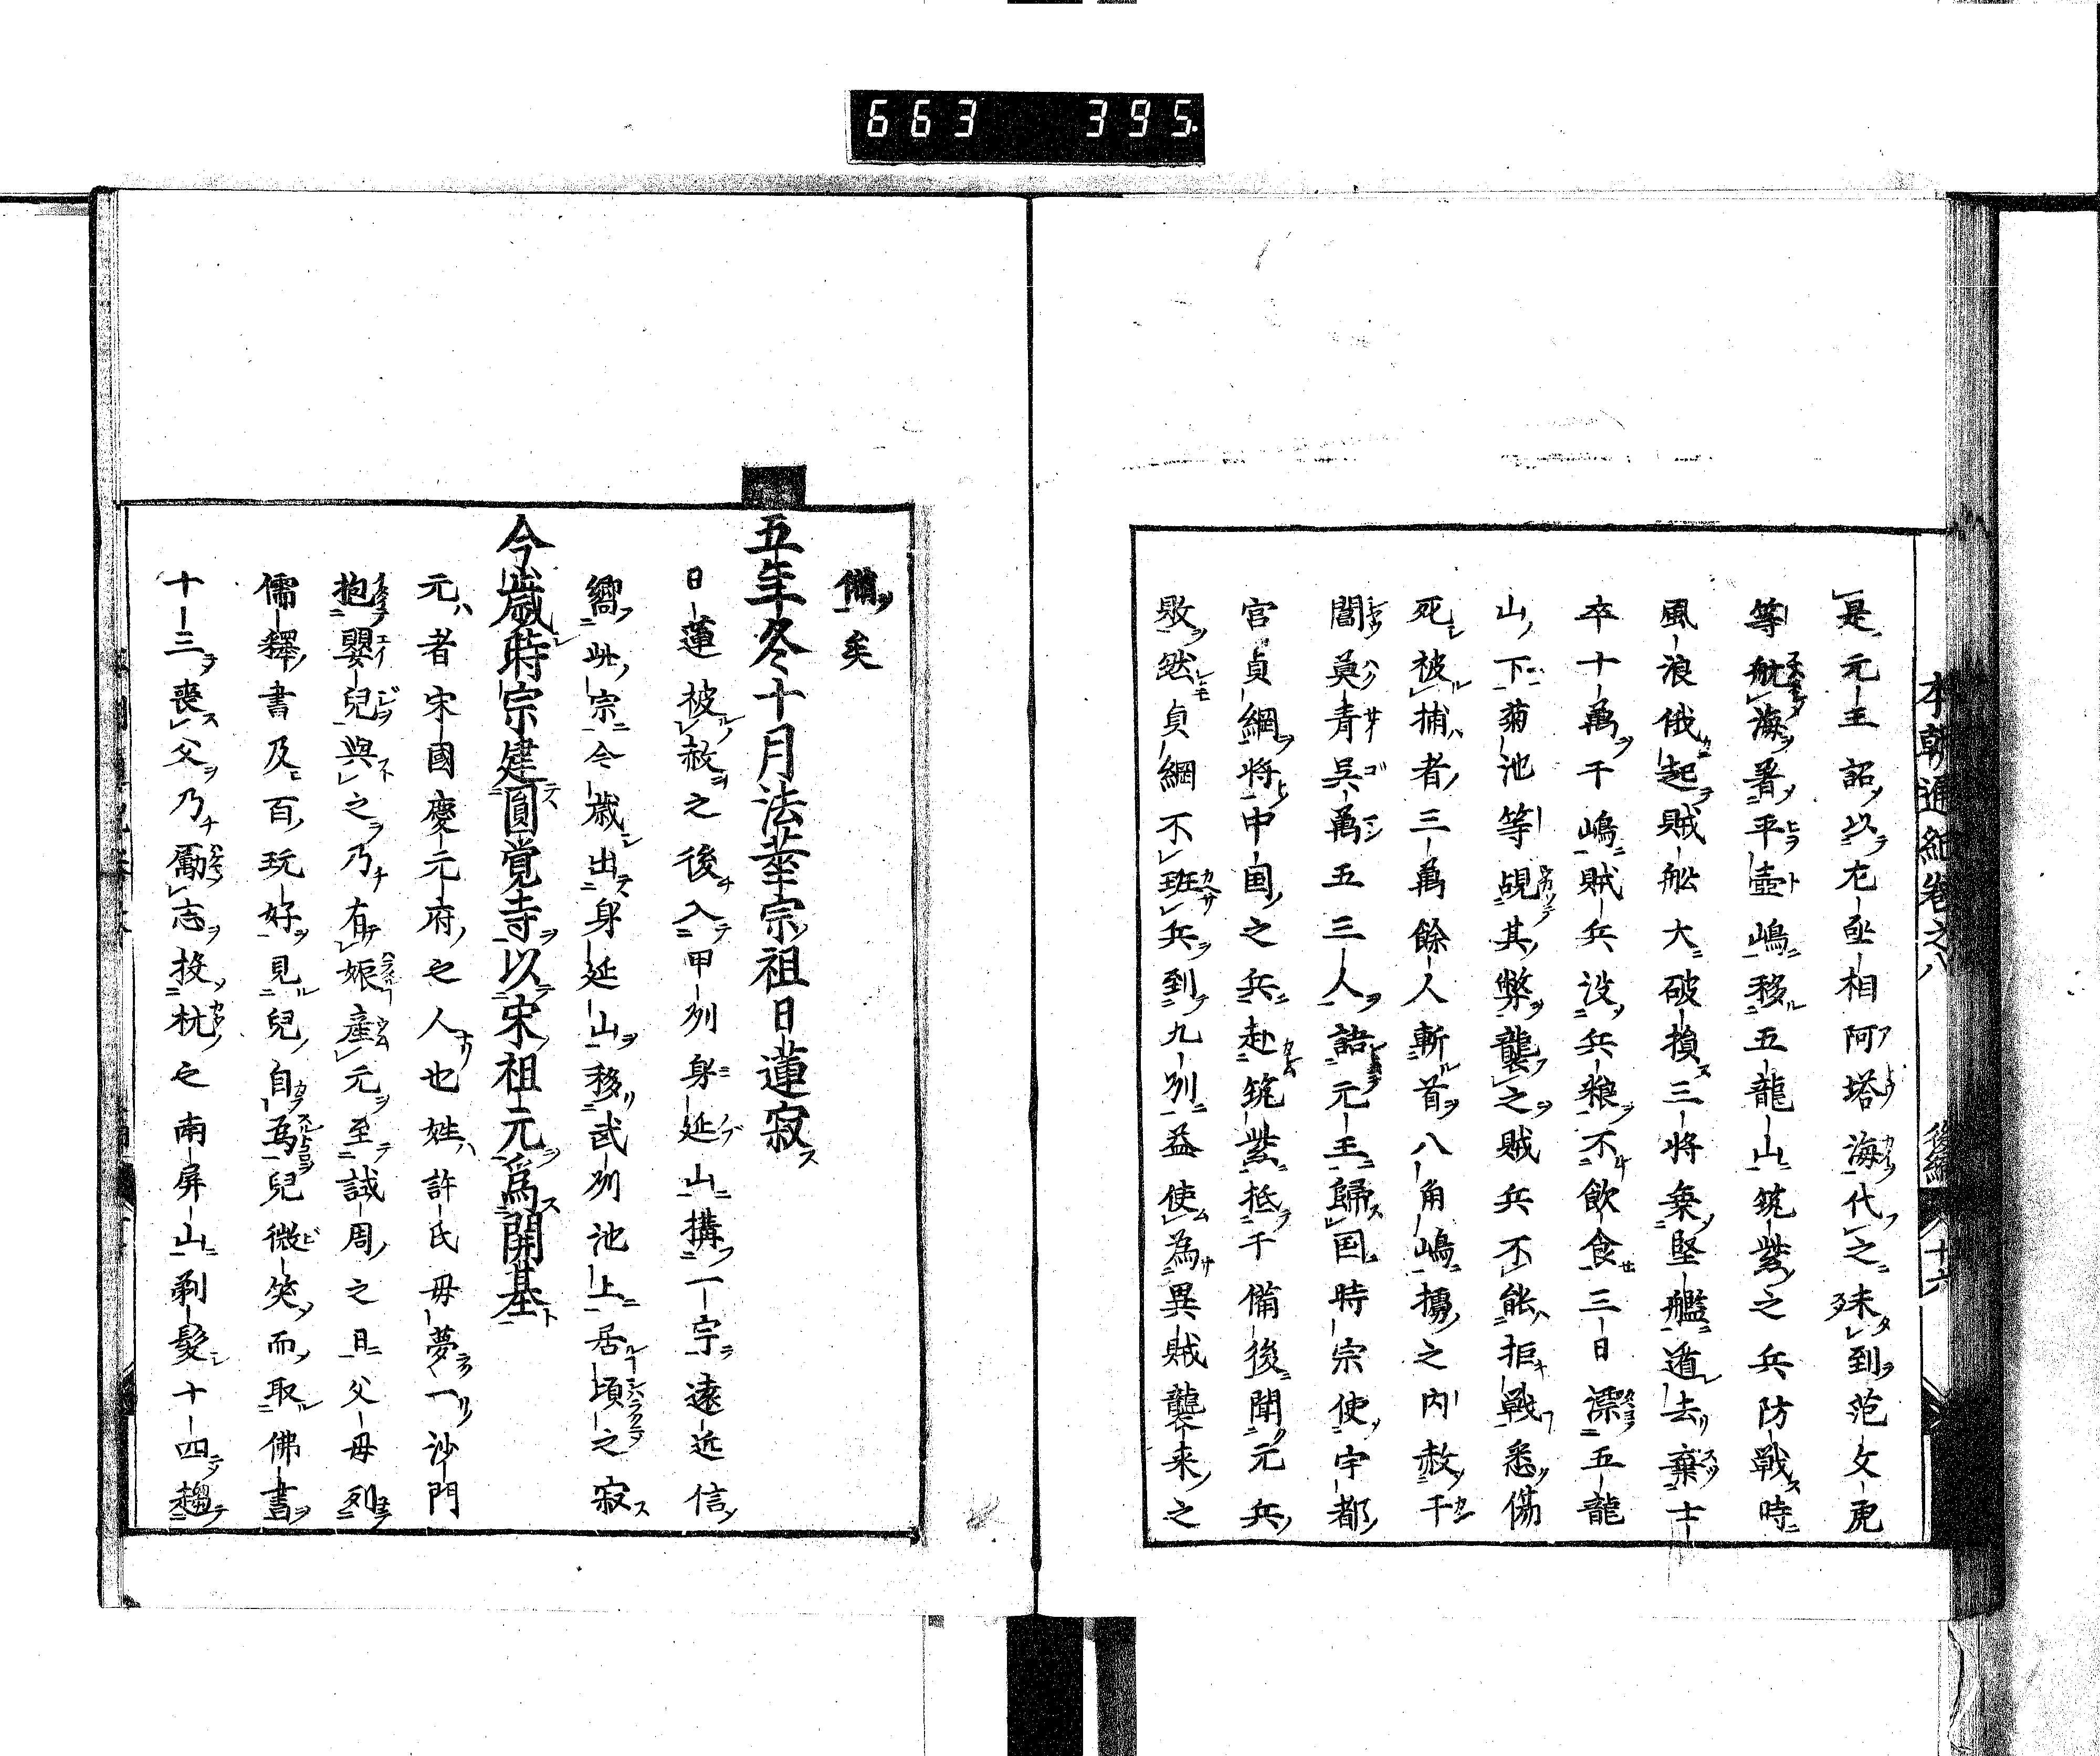 663 395.
本朝通紀卷之八 後編 八 十六
是元王詔以左丞相阿塔海代之未到范文虎
等航海著平壺嶋移五龍山筑紫之兵防戰時
風浪俄起賊舩大破損三將棄堅艦遁去棄士
卒十萬于嶋賊兵没兵粮不飲食三日漂五龍
山下菊池等覘其弊襲之賊兵不能拒戰悉傷
死被捕者三萬餘人斬首八角嶋擄之内赦于
閶莫青吳萬五三人諮元王歸国時宗使宇都
宮貞綱將中国之兵赴筑紫抵于備後聞元兵
敗然貞綱不班兵到九刕益使為異賊襲来之
備矣
五年冬十月法華宗祖日蓮寂
日蓮被赦之後入甲刕身延山構一宇遠近信
嚮此宗今歳出身延山移武刕池上居頃之寂
今歳時宗建圓覚寺以宋祖元爲開基
元者宋國慶元府之人也姓許氏母夢一沙門
抱嬰兒與之乃有娠産元至誠周之日父母列
儒釋書及百玩好見兒自爲兒微笑而取佛書
十三喪父乃勵志投杭之南屏山剃髮十四趨